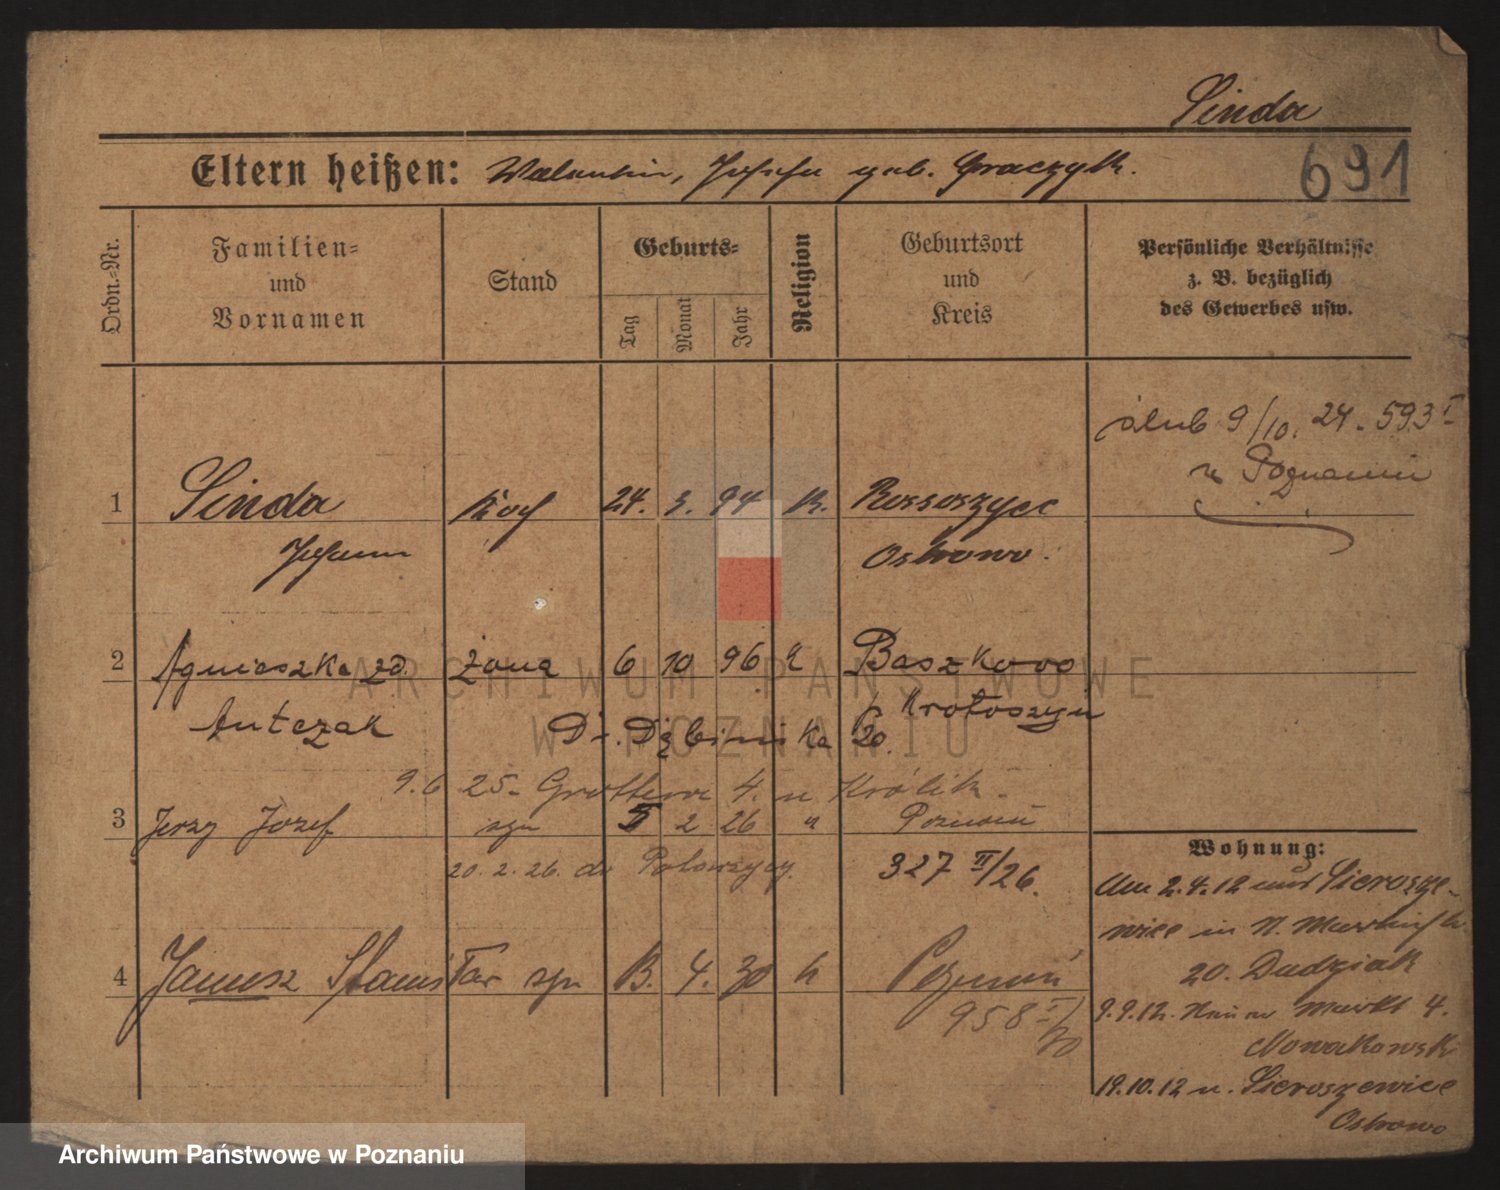 Sinda
Eltern heißen: Valentin, Josefa geb. Graczyk.
691
Ordn.-Nr.
Familien- und Vornamen
Stand
Geburts-
Tag
Monat
Jahr
Religion
Geburtsort und Kreis
Persönliche Verhältnisse z. B. bezüglich des Gewerbes usw.
ślub 9/10. 24. 593 I
w Poznaniu
1 Sinda Koch 24. 94 K.
Johann Ostrowo.
2 Agnieszka zd. żona 6 10 96 Baszkowo
Antczak Krotoszyn
20.
9.6 25 4. u Królik
3 Jerzy Józef syn 5 2 26 " Poznań
20. 2. 26. do 327 II/26.
4 Janusz syn 4. 30 k Poznań
958 I/30
Wohnung:
Am 2.4.12 Sierosze-
wice in
20. Dudziak
9.9.12. Neuer Markt 4.
Nowakowski
19.10.12 n. Sieroszewice
Ostrowo
ARCHIWUM PAŃSTWOWE
W POZNANIU
Archiwum Państwowe w Poznaniu